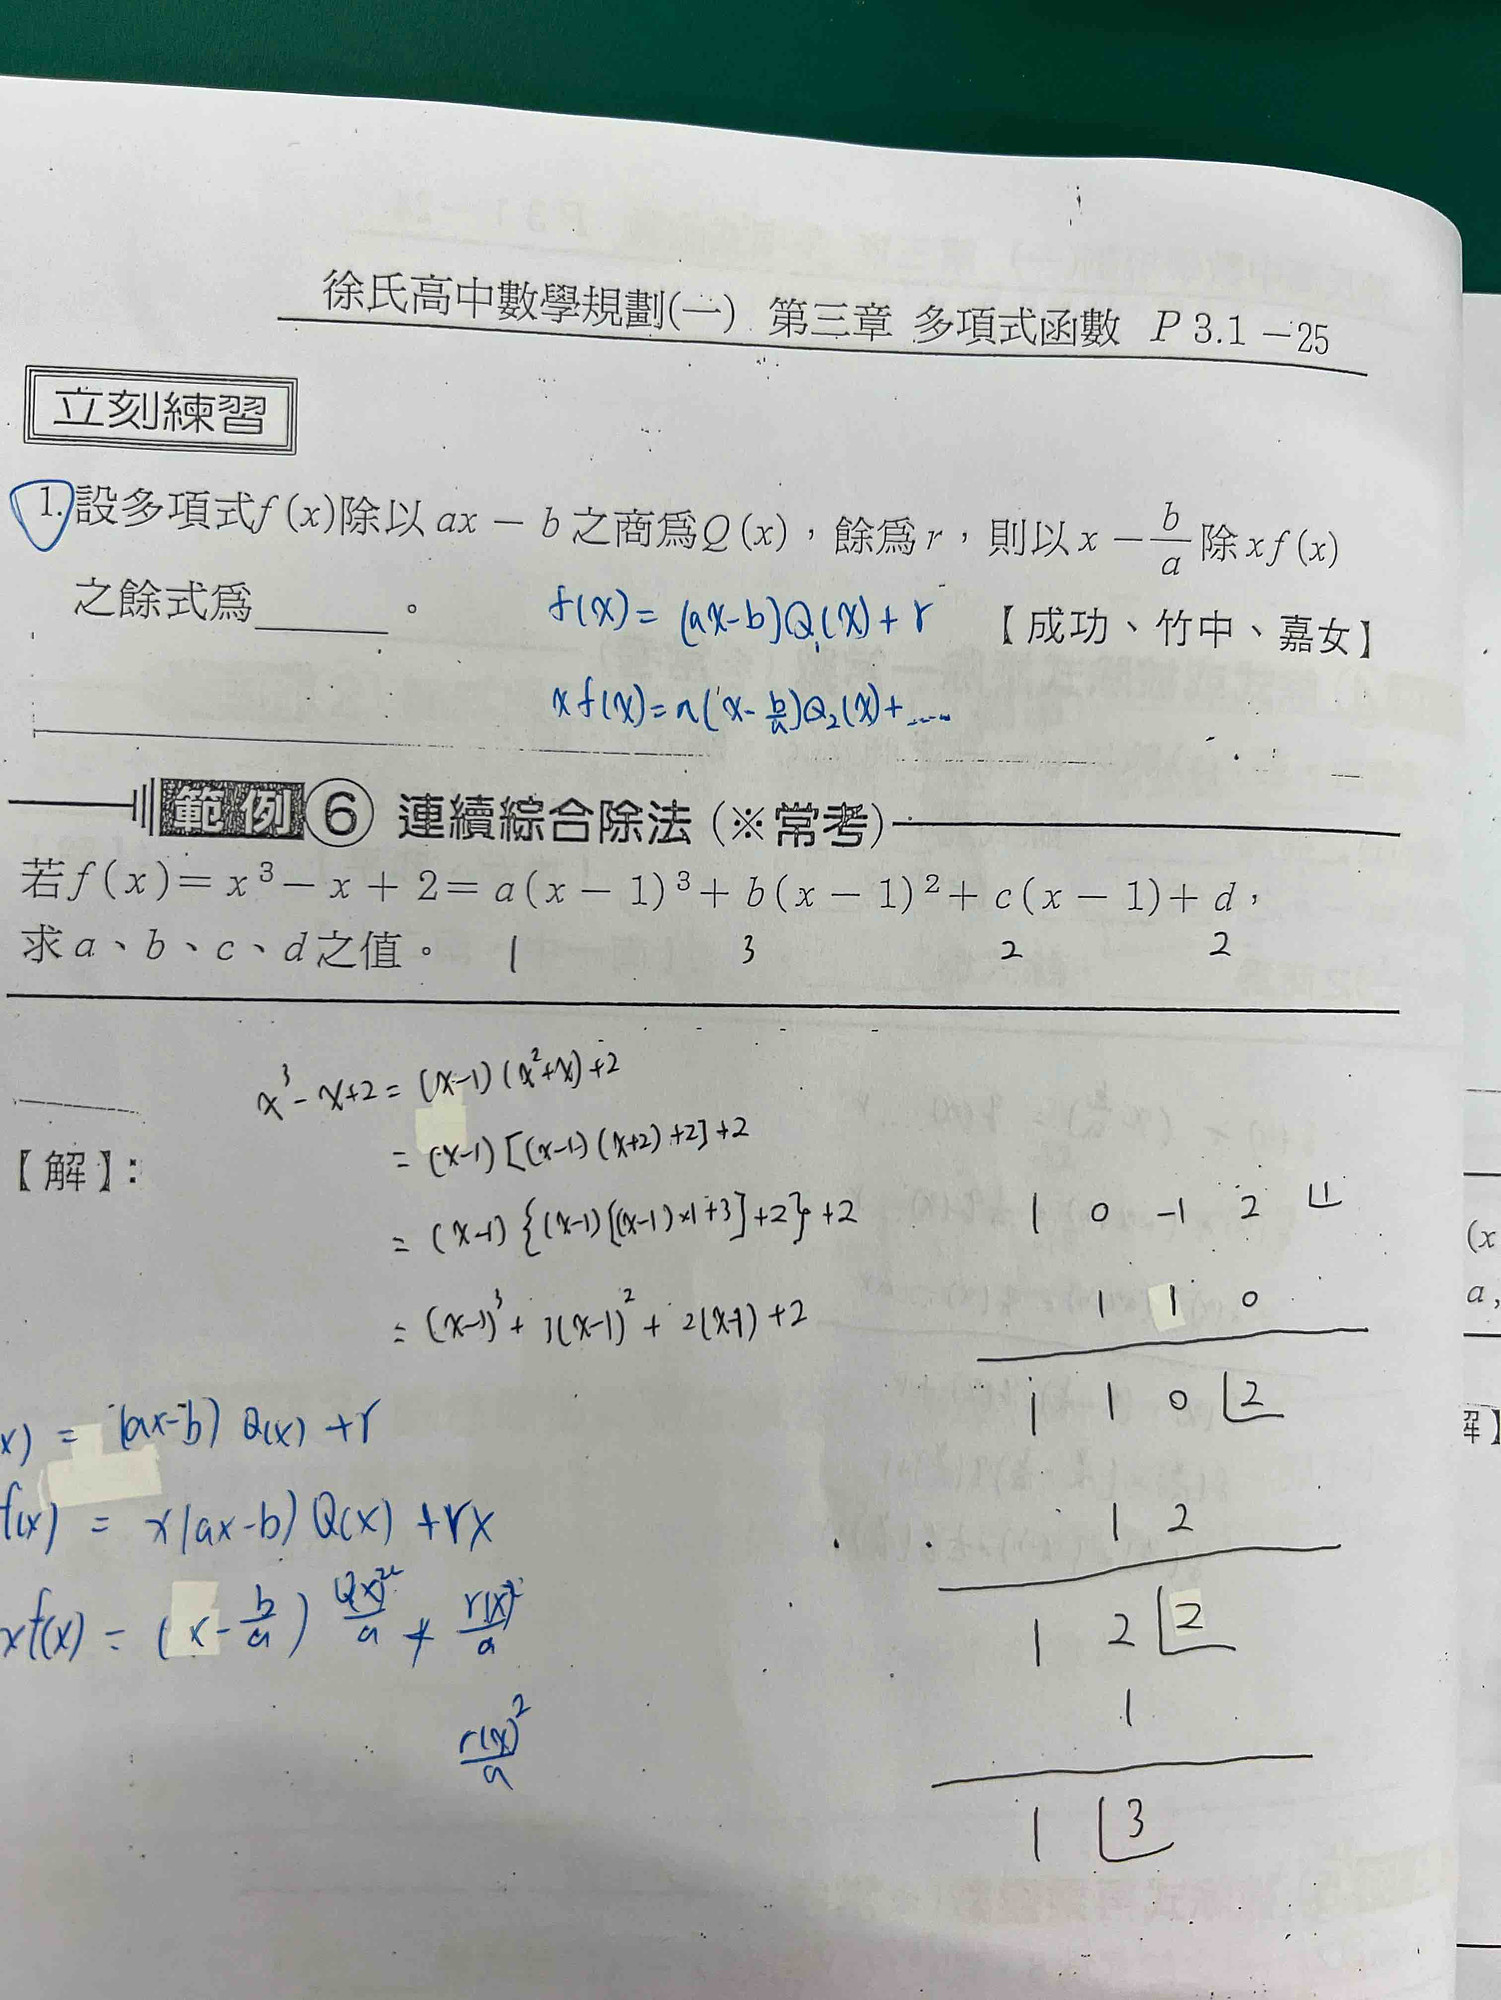 徐氏高中數學規劃(一) 第三章 多項式函數 P 3.1－25
立刻練習
1.設多項式f(x)除以ax－b之商爲Q(x)，餘爲r，則以x－b/a除xf(x)
之餘式爲______。
【成功、竹中、嘉女】
f(x)=(ax-b)Q₁(x)+r
xf(x)=a(x-b/a)Q₂(x)+....
範例⑥ 連續綜合除法(※常考)
若f(x)＝x³－x＋2＝a(x－1)³＋b(x－1)²＋c(x－1)＋d，
求a、b、c、d之值。
1 3 2 2
【解】：
x³-x+2=(x-1)(x²+x)+2
=(x-1)[(x-1)(x+2)+2]+2
=(x-1){(x-1)[(x-1)×1+3]+2}+2
=(x-1)³+3(x-1)²+2(x-1)+2
1 0 -1 2 1
1 1 0
1 1 0 2
1 2
1 2 2
1
1 3
x) = (ax-b) Q(x) +r
f(x) = x(ax-b) Q(x) +rx
xf(x) = (x-b/a)
r(x)²/a
(x
a,
解】